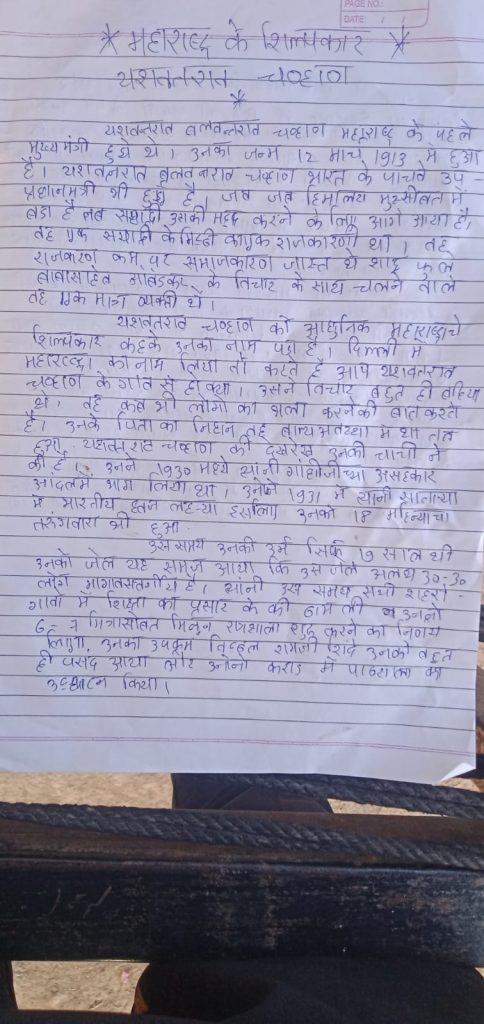 PAGE NO.:
DATE: / /
* महाराष्ट्र के शिल्पकार *
यशवंतराव चव्हाण
*
यशवन्तराव बलवन्तराव चव्हाण महाराष्ट्र के पहले
मुख्यमंत्री हुये थे। उनका जन्म 12 मार्च 1913 में हुआ
है। यशवंतराव बलवंतराव चव्हाण भारत के पाचवे उप-
प्रधानमंत्री भी हुये है, जब जब हिमालय मुस्सीबत में
बडा है तब सह्याद्री उसकी मद्द करने के लिए आगे आया है,
वह एक सह्याद्री के मिट्टी का एक राजकारणी था। वह
राजकारण कम पर समाजकारण जास्त थे शाहू फुले
बाबासाहेब आंबेडकर के विचार के साथ चलने वाले
वह एक मात्र व्यक्ती थे।
यशवंतराव चव्हाण को आधुनिक महाराष्ट्राचे
शिल्पकार कहके उनका नाम पडा है। दिल्ली में
महाराष्ट्र का नाम लिया तो कहते है आप यशवंतराव
चव्हाण के गाव से हो क्या। उसने विचार बहुत ही बढिया
थे, वह कब भी लोगो का भला करने की बात करते
है। उनके पिता का निधन वह बाल्य अवस्था में था तब
हुआ. यशवंतराव चव्हाण की देखरेख उनकी चाची ने
की है। उनने 1930 मध्ये त्यांनी गांधीजीच्या असहकार
आंदोलन में भाग लिया था। उन्होने 1931 में त्यानी साताऱ्या
में भारतीय ध्वज लहऱ्या इसलिए उनको 18 महिन्याचा
तरुंगवास भी हुआ.
उस समय उनकी उर्म सिर्फ 17 साल थी
उनको जेल यह समज आया कि उस जेल 30-30
लोग मागासवर्गीय है। त्यांनी उस समय सभी शहरो-
गावो में शिक्षा का प्रसार के की ठाम ली व उनने
6-7 मित्रासोबत मिलून शुरू करने का निर्णय
लिया. उनका उपक्रम विठ्ठल रामजी शिंदे उनको बहुत
ही पसंद आया और उन्होने कराड में पाठशाला का
उद्घाटन किया।